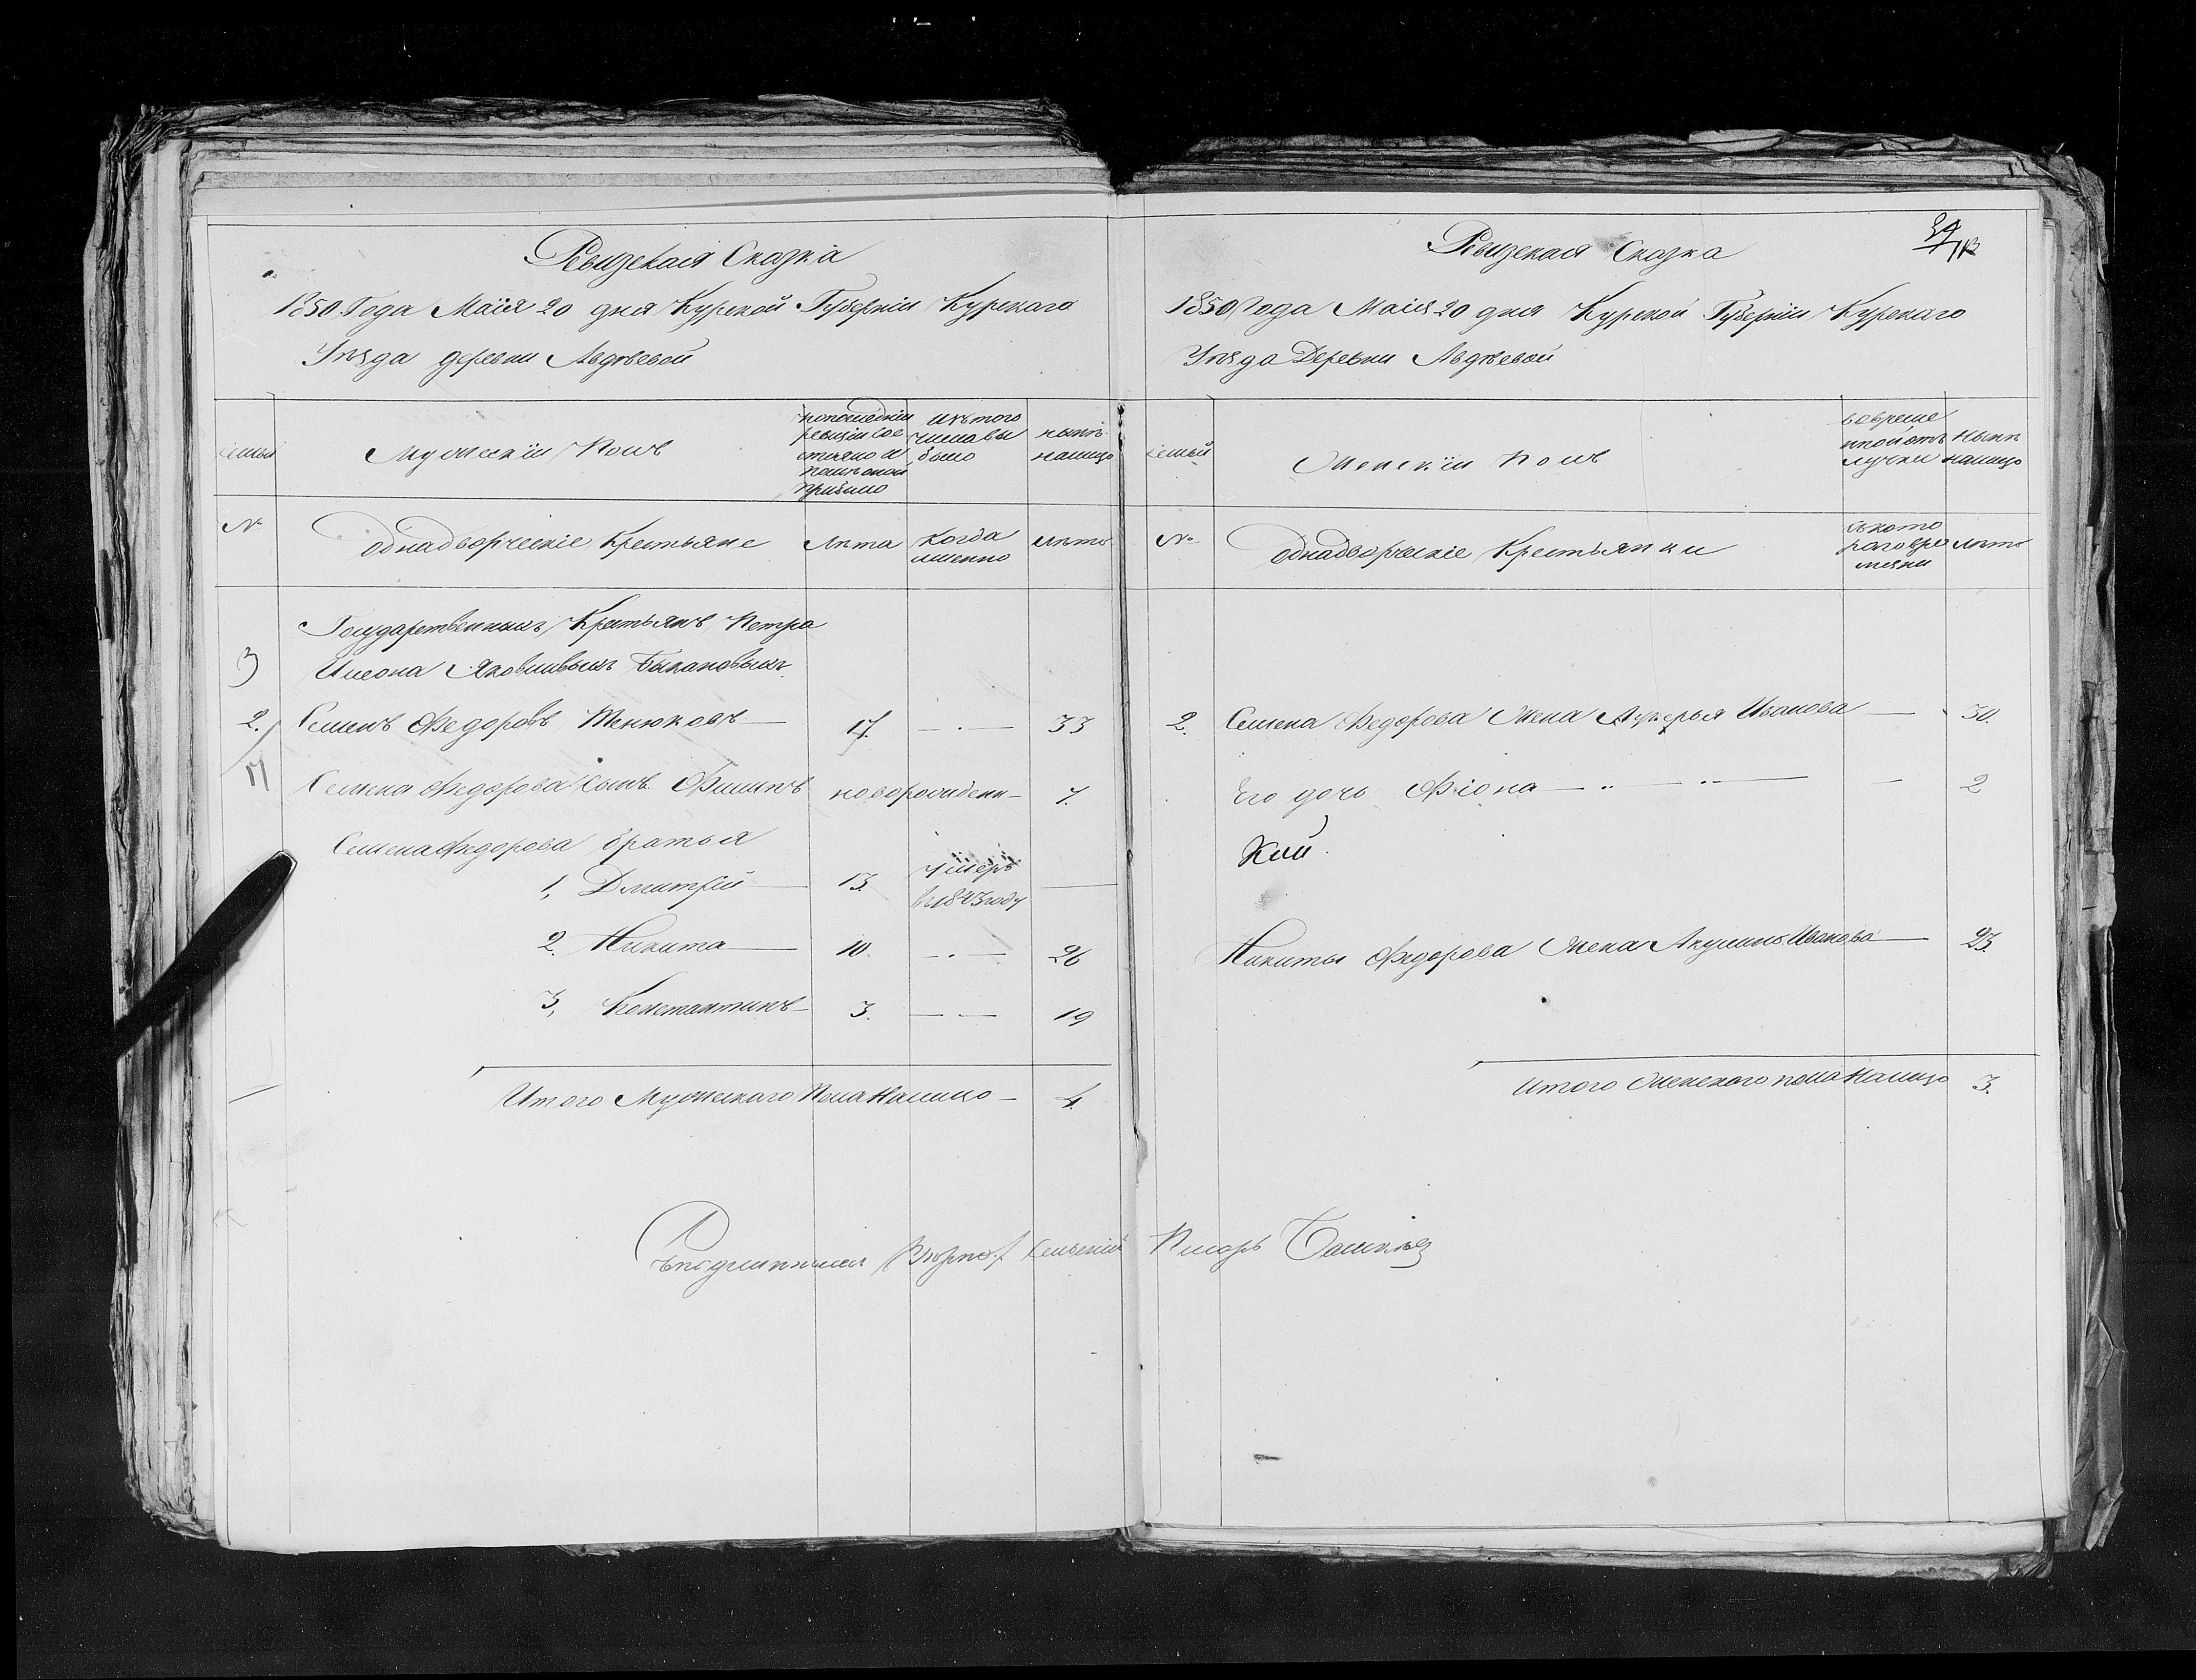 Ревизская Сказка
1850 Года Маiя 20 дня Курской Губернiи Курскаго
Уѣзда деревни Авдѣевой
семьи
Мужескiй Полъ
по последнiй
ревизiи сос
тояло и
после оной
прибыло
изъ того
числа вы
было
нынѣ
налицо
№
однадворческiе Крестьяне
Лѣта
когда
именно
лѣта
Государственныхъ Крестьянъ Петра
Яковлевыхъ Быкановыхъ
3
2.
Семенъ Федоровъ Тенюковъ
17.
33
Семена Федорова сынъ Филипъ
новорожденн
7.
Семена Федорова братья
1, Дмитрiй
13.
умеръ
в 1843 году
2. Никита
10.
26
3, Константинъ
3.
19
Итого Мужескаго Пола Налицо
4.
Ревизская Сказка
1850 Года Маiя 20 дня Курской Губернiи Курскаго
Уѣзда Деревни Авдѣевой
семьи
Женскiй Полъ
во време
нной отъ
лучки
нынѣ
налицо
№
однадворческiе Крестьянки
съ кото
раго вре
мяни
лѣта
2.
Семена Федорова Жена Лукерья Иванова
30.
Его дочь Фiона
2
Никиты Федорова Жена Акулина Иванова
23.
Итого Женскаго пола Налицо
3.
Сельскiй Писарь